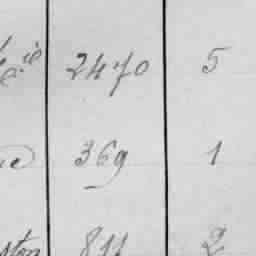 Cie 2470 5
369 1
ston 811 2